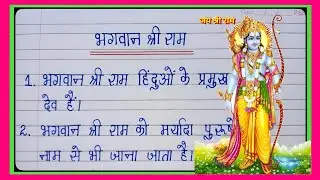 जय श्री राम
भगवान श्री राम
1. भगवान श्री राम हिंदुओं के प्रमुख
देव है।
2. भगवान श्री राम को मर्यादा
नाम से भी जाना जाता है।